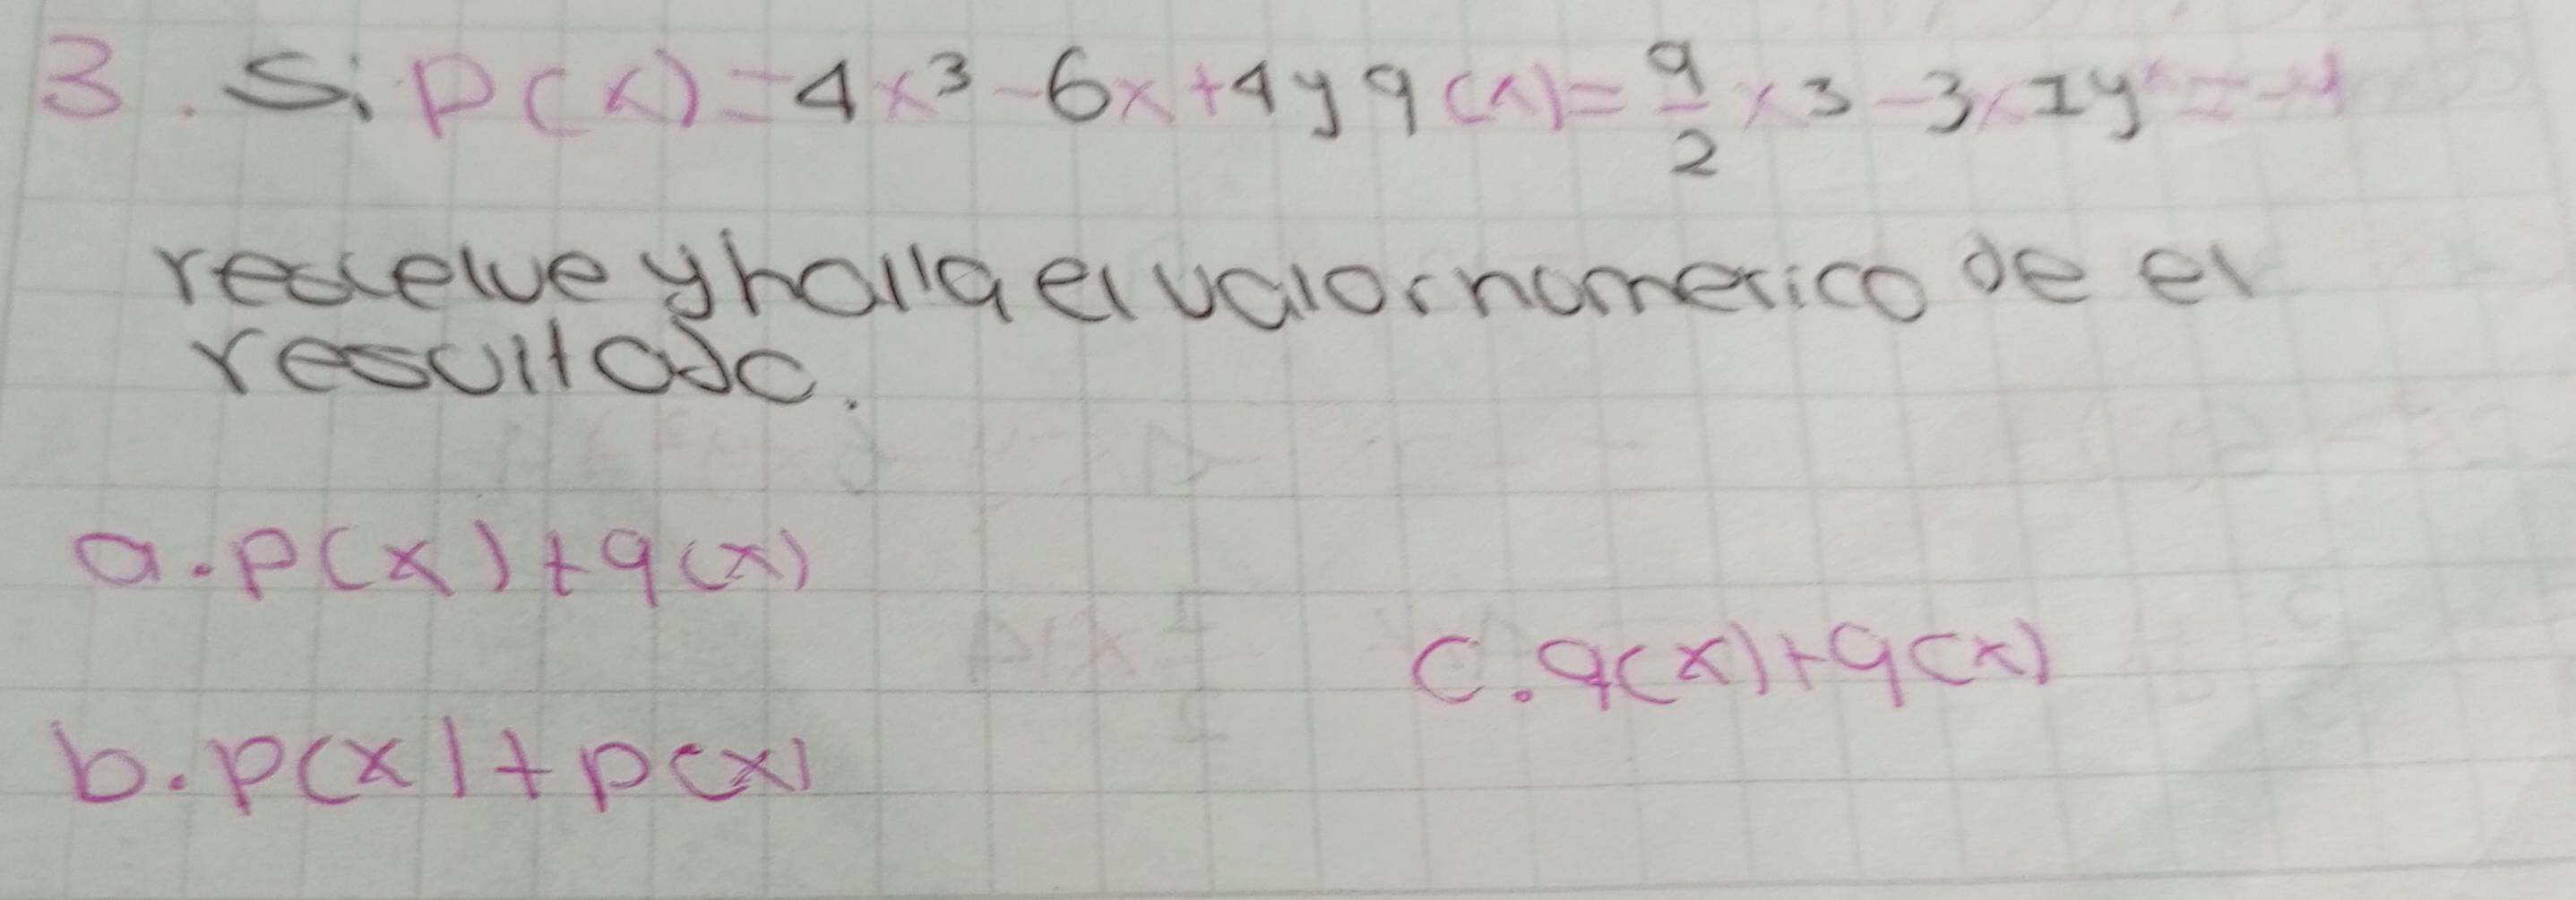 3. Si p(x)=4x³-6x+4 y q(x)= 9/2 x3-3x1 y x=-4
resuelve y halla el valor numerico de el
resultado.
a. p(x)+q(x)
c. q(x)+q(x)
b. p(x)+p(x)